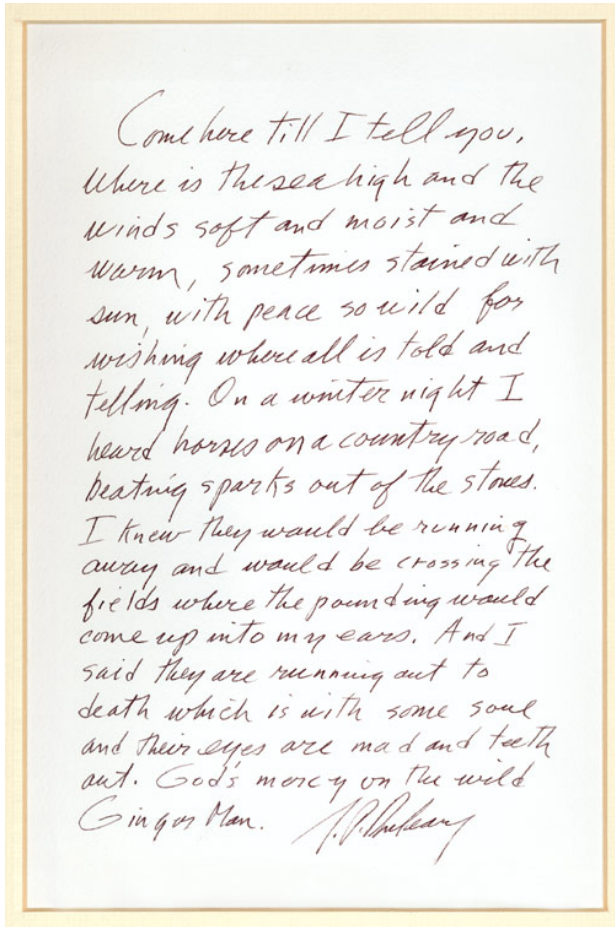 Come here till I tell you.
Where is the sea high and the
winds soft and moist and
warm, sometimes stained with
sun, with peace so wild for
wishing where all is told and
telling. On a winter night I
heard horses on a country road,
beating sparks out of the stones.
I knew they would be running
away and would be crossing the
fields where the pounding would
come up into my ears. And I
said they are running out to
death which is with some soul
and their eyes are mad and teeth
out. God's mercy on the wild
Ginger Man. J.P. Donleavy